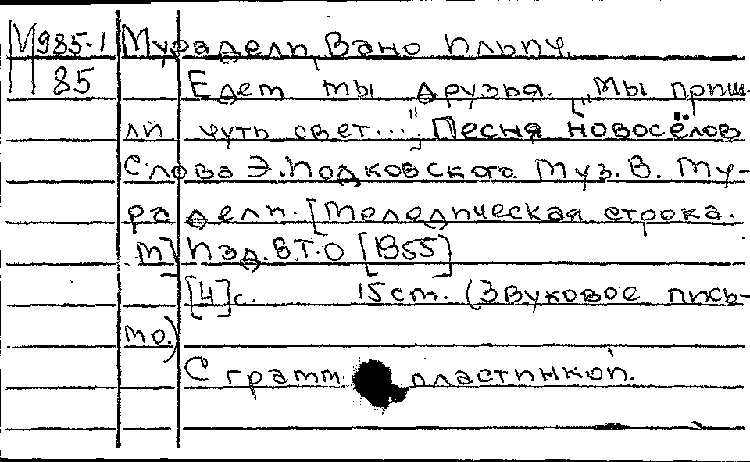 М985-1 Мурадели, Вано Ильич.
85 Едем мы друзья. „Мы приш-
ли чуть свет..." Песня новосёлов
Слова Э. Иодковского Муз. В. Му-
радели. [Мелодическая строка.
М] Изд. В.Т.О [1955]
[4]с. 15 cm. (Звуковое пись-
мо.)
С грамм пластинкой.